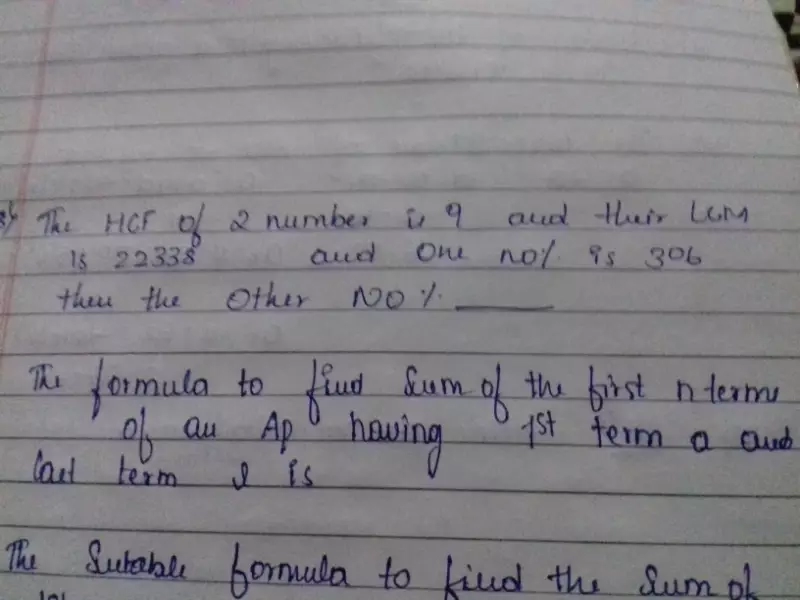 The HCF of 2 number is 9 and their LCM
is 22338 and One no% is 306
then the Other NO%. ______
The formula to find Sum of the first n terms
of an Ap having 1st term a and
last term l is
The Sutable formula to find the Sum of